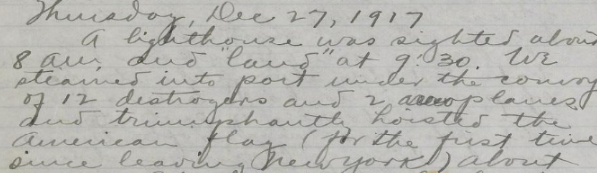 Thursday, Dec 27, 1917
A lighthouse was sighted about
8 am. and "land" at 9:30. We
steamed into port under the convoy
of 12 distroyers and 2 aeroplanes
and triumphantly hoisted the
American flag (for the first time
since leaving New York) about